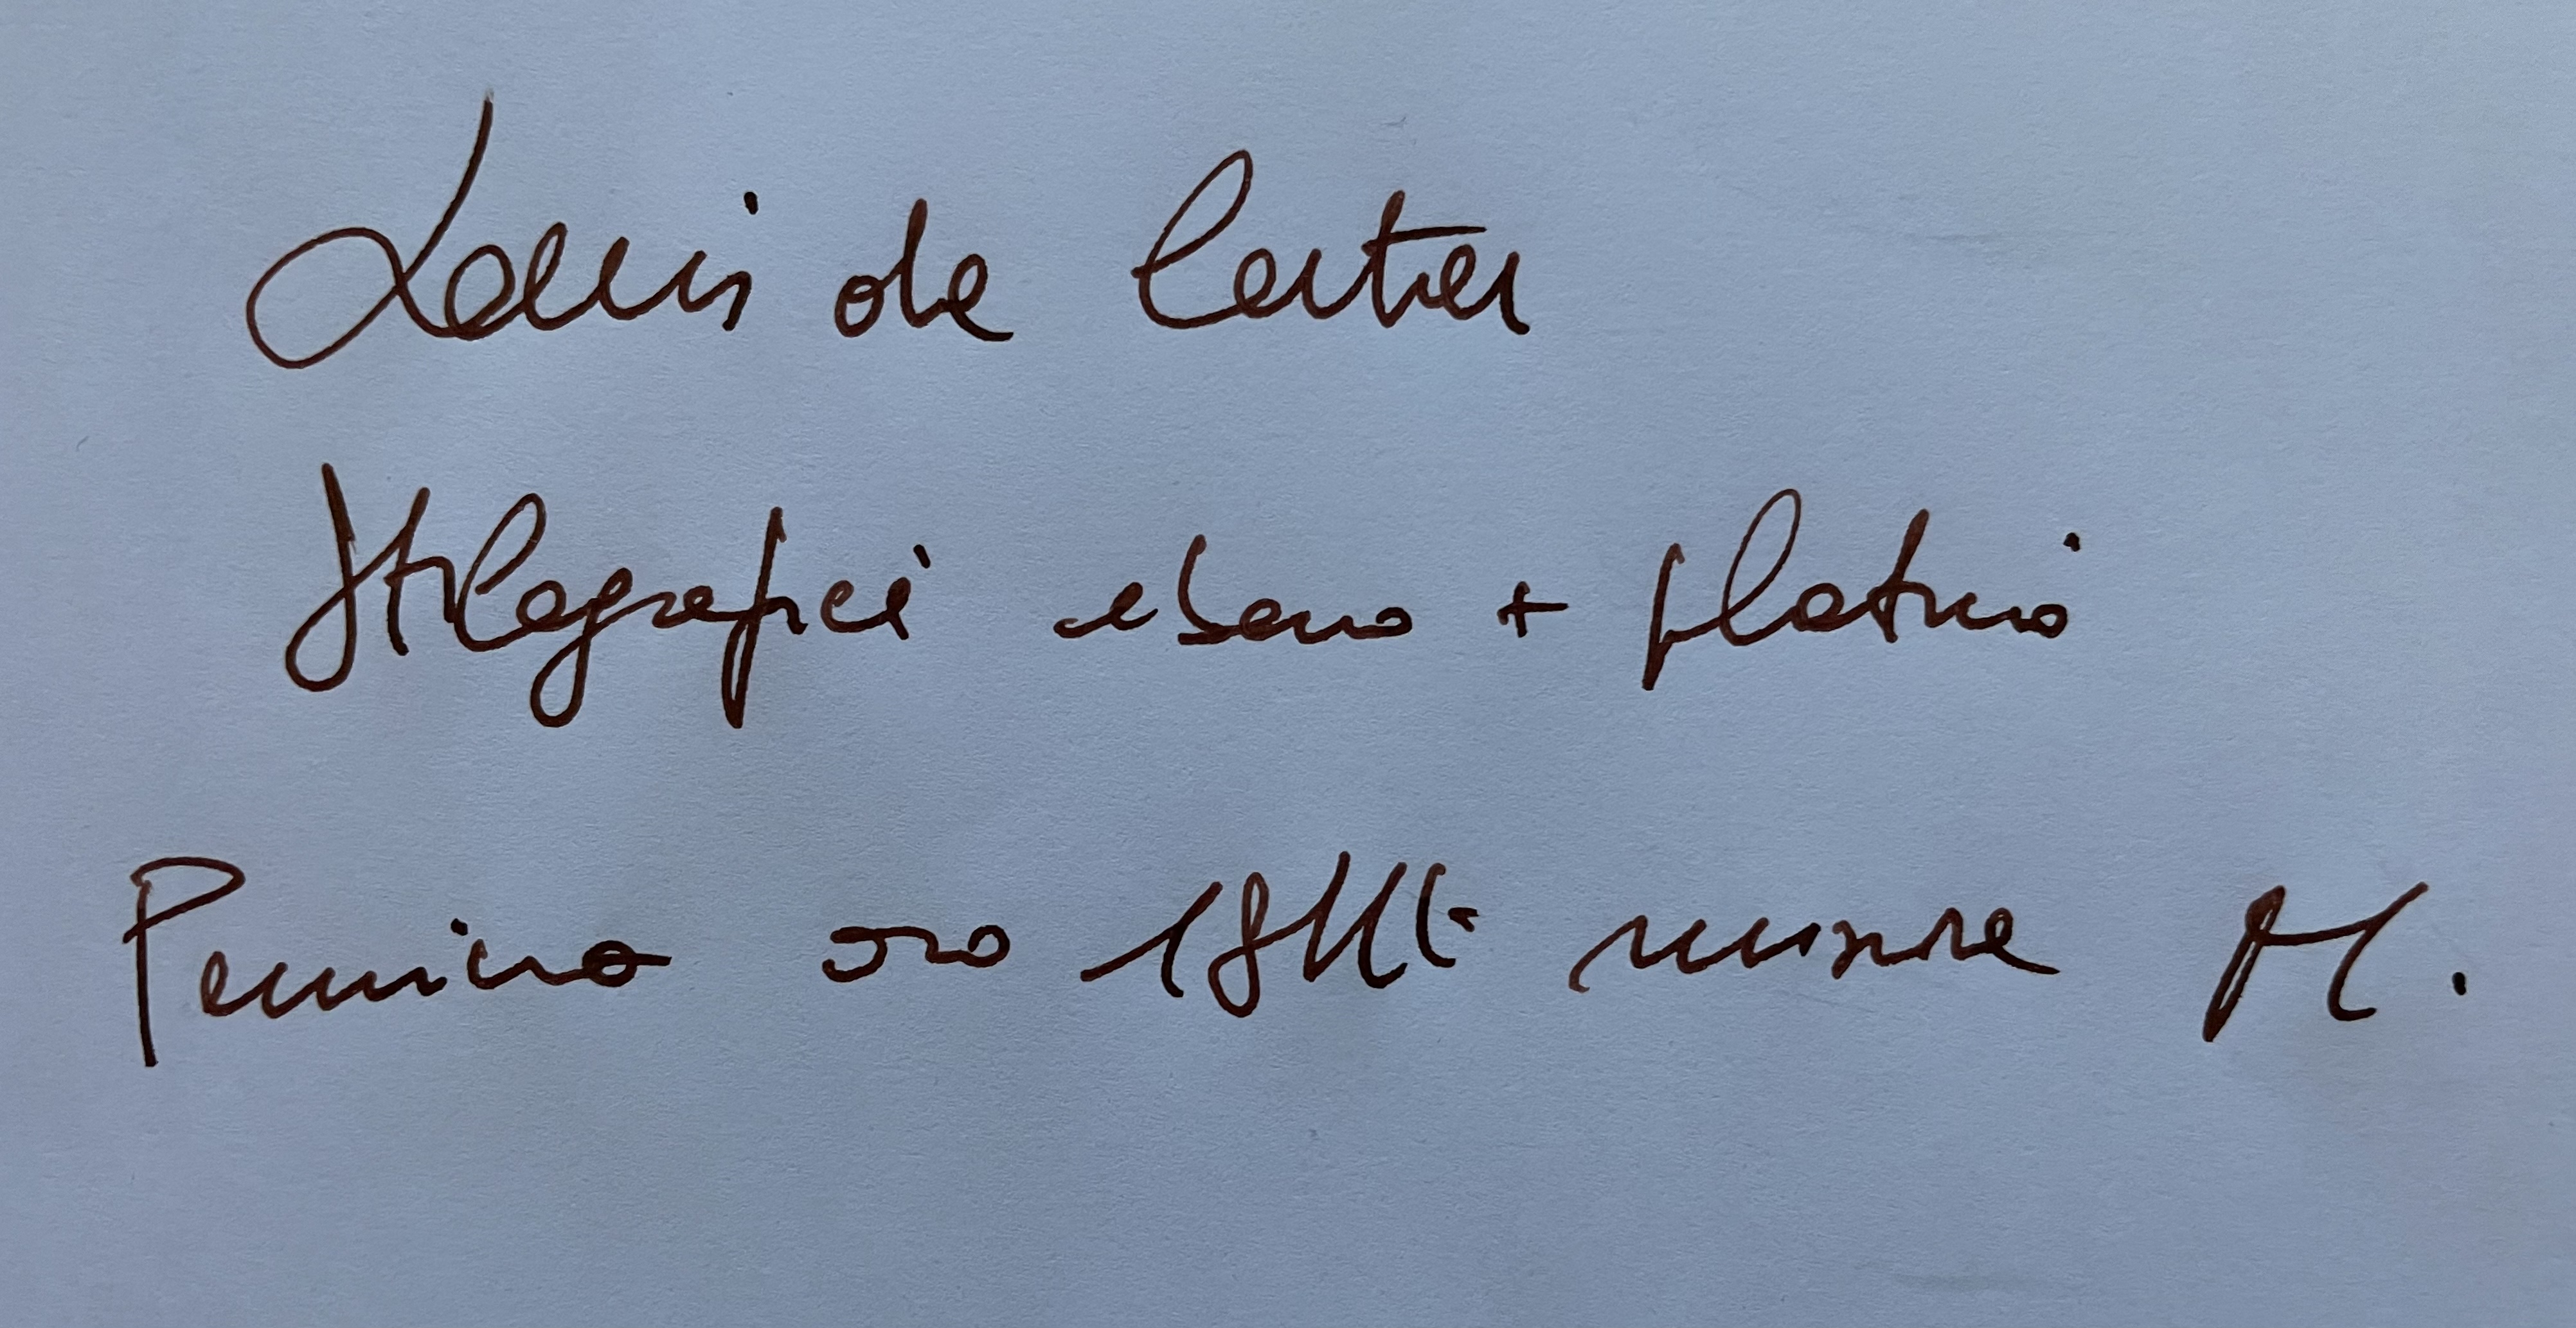 Louis de Cartier
Stilografica ebano + platino
Pennino oro 18Kt misura M.